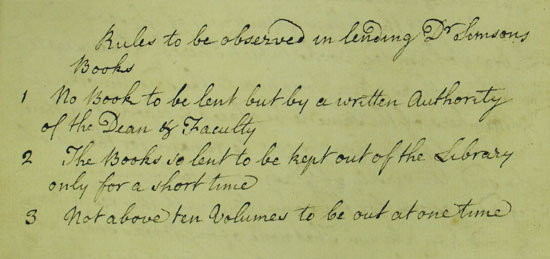 Rules to be observed in lending Dr Simsons
Books
1 No Book to be lent but by a written Authority
of the Dean & Faculty
2 The Books so lent to be kept out of the Library
only for a short time
3 Not above ten Volumes to be out at one time